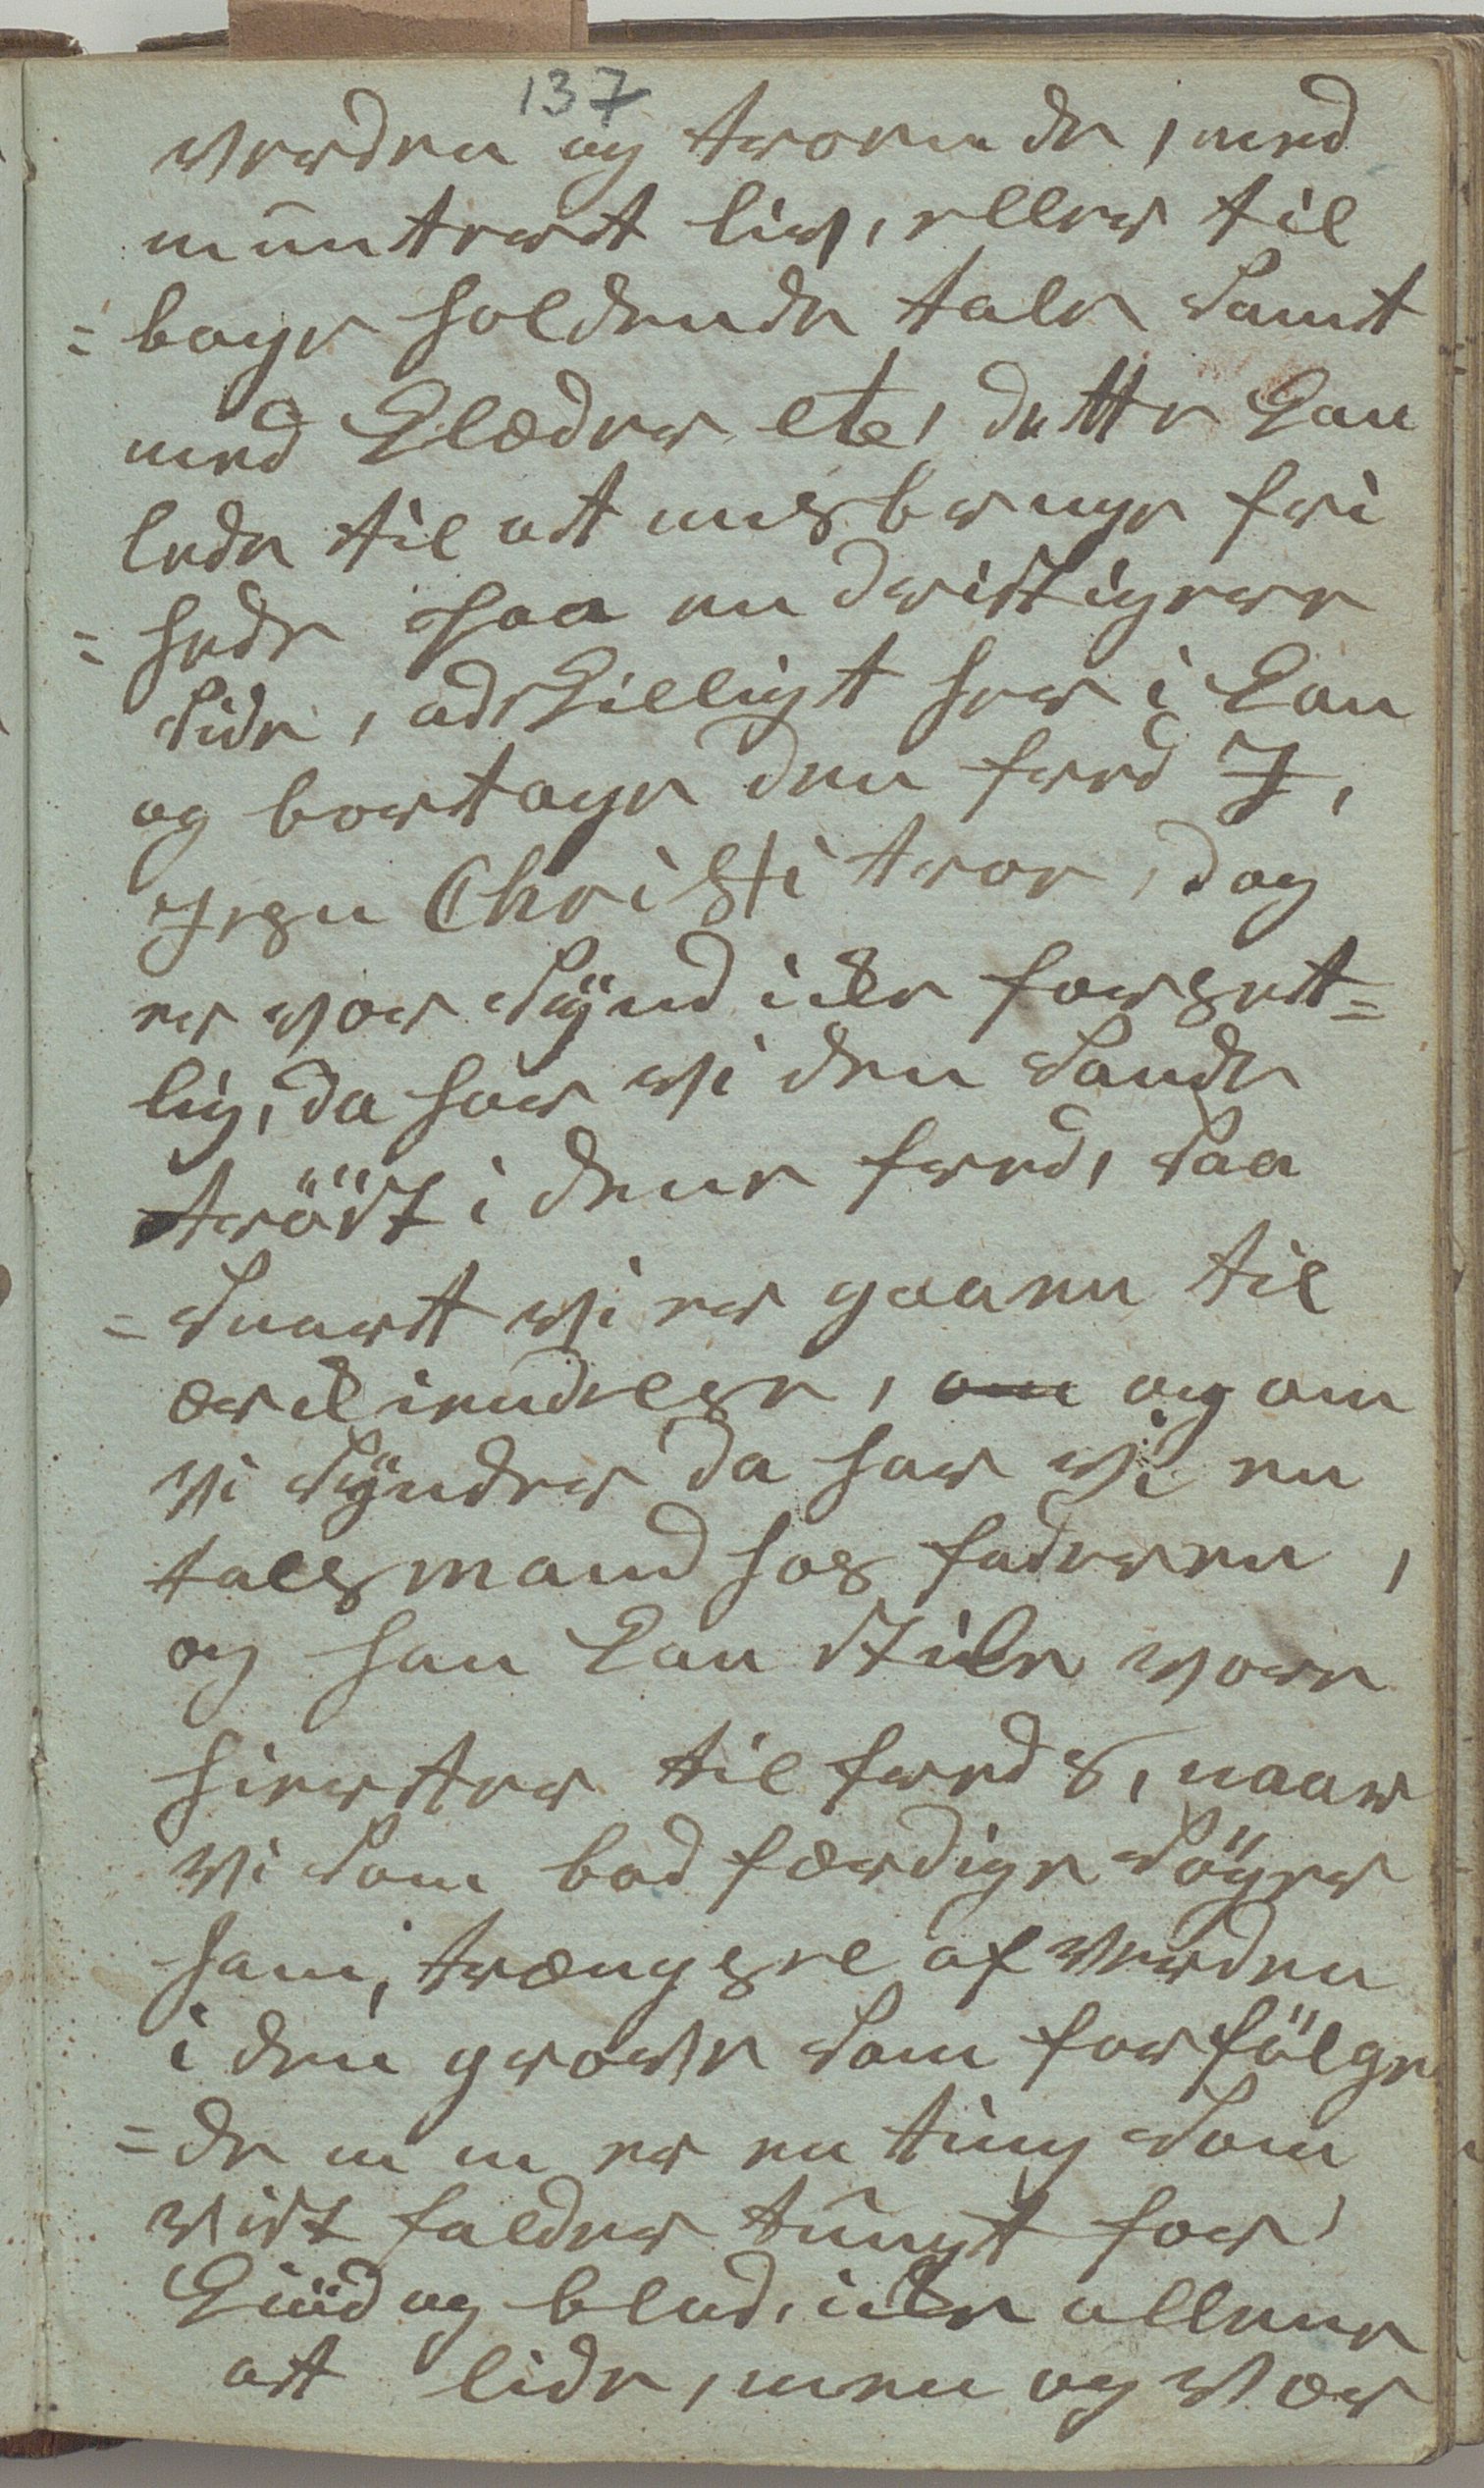 137
Verden og troende, med
muntert liv, eller til
=bage holdende tale samt
med Klæder etc, dette kan
lede til at misbruge fri
=hede paa en dristigere
Side, adskilligt her i kan
og borttage den fred J,
Jesu Christi troe, dog
er vor Synd icke forsett=
lig, da har vi den Sande
tröst i dene fred, saa
=Snartt vi er gaaen til
erkiendelse, om og om
vi Synder da har vi en
talsmand hos faderen,
og han kan stile vore
hierter til freds, naar
vi som bod færdige Söger
ham, trængsel af Verden
i den grove som forfölge
=de m m er en ting som
vist falder tungt for
Kiöd og blod, icke allene
att lide, men og vær